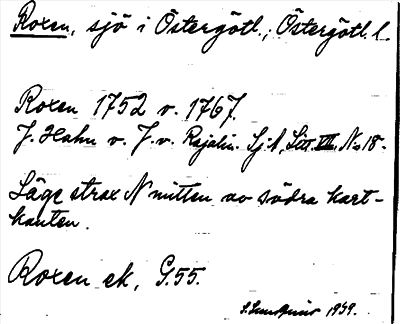 Roxen, sjö i Östergötl., Östergötl. l.
Roxen 1752 v. 1767.
J. Hahn v. J. v. Rajalin. Sj.A, Litt. VII. No 18.
Läge strax N mitten av södra kart-
kanten.
Roxen ek, G.55.
1939.